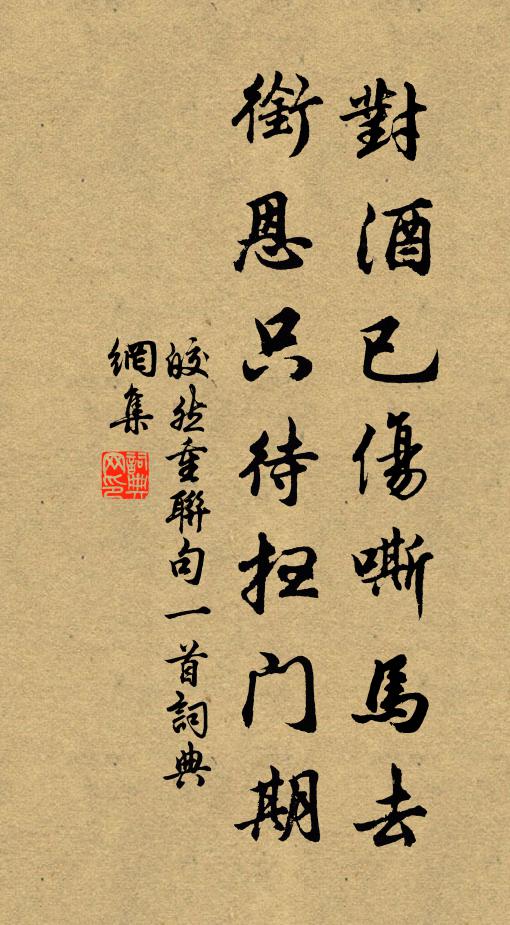 對酒已傷嘶馬去
銜恩只待扫门期
皎然重聯句一首詞典
網集
詞典网印